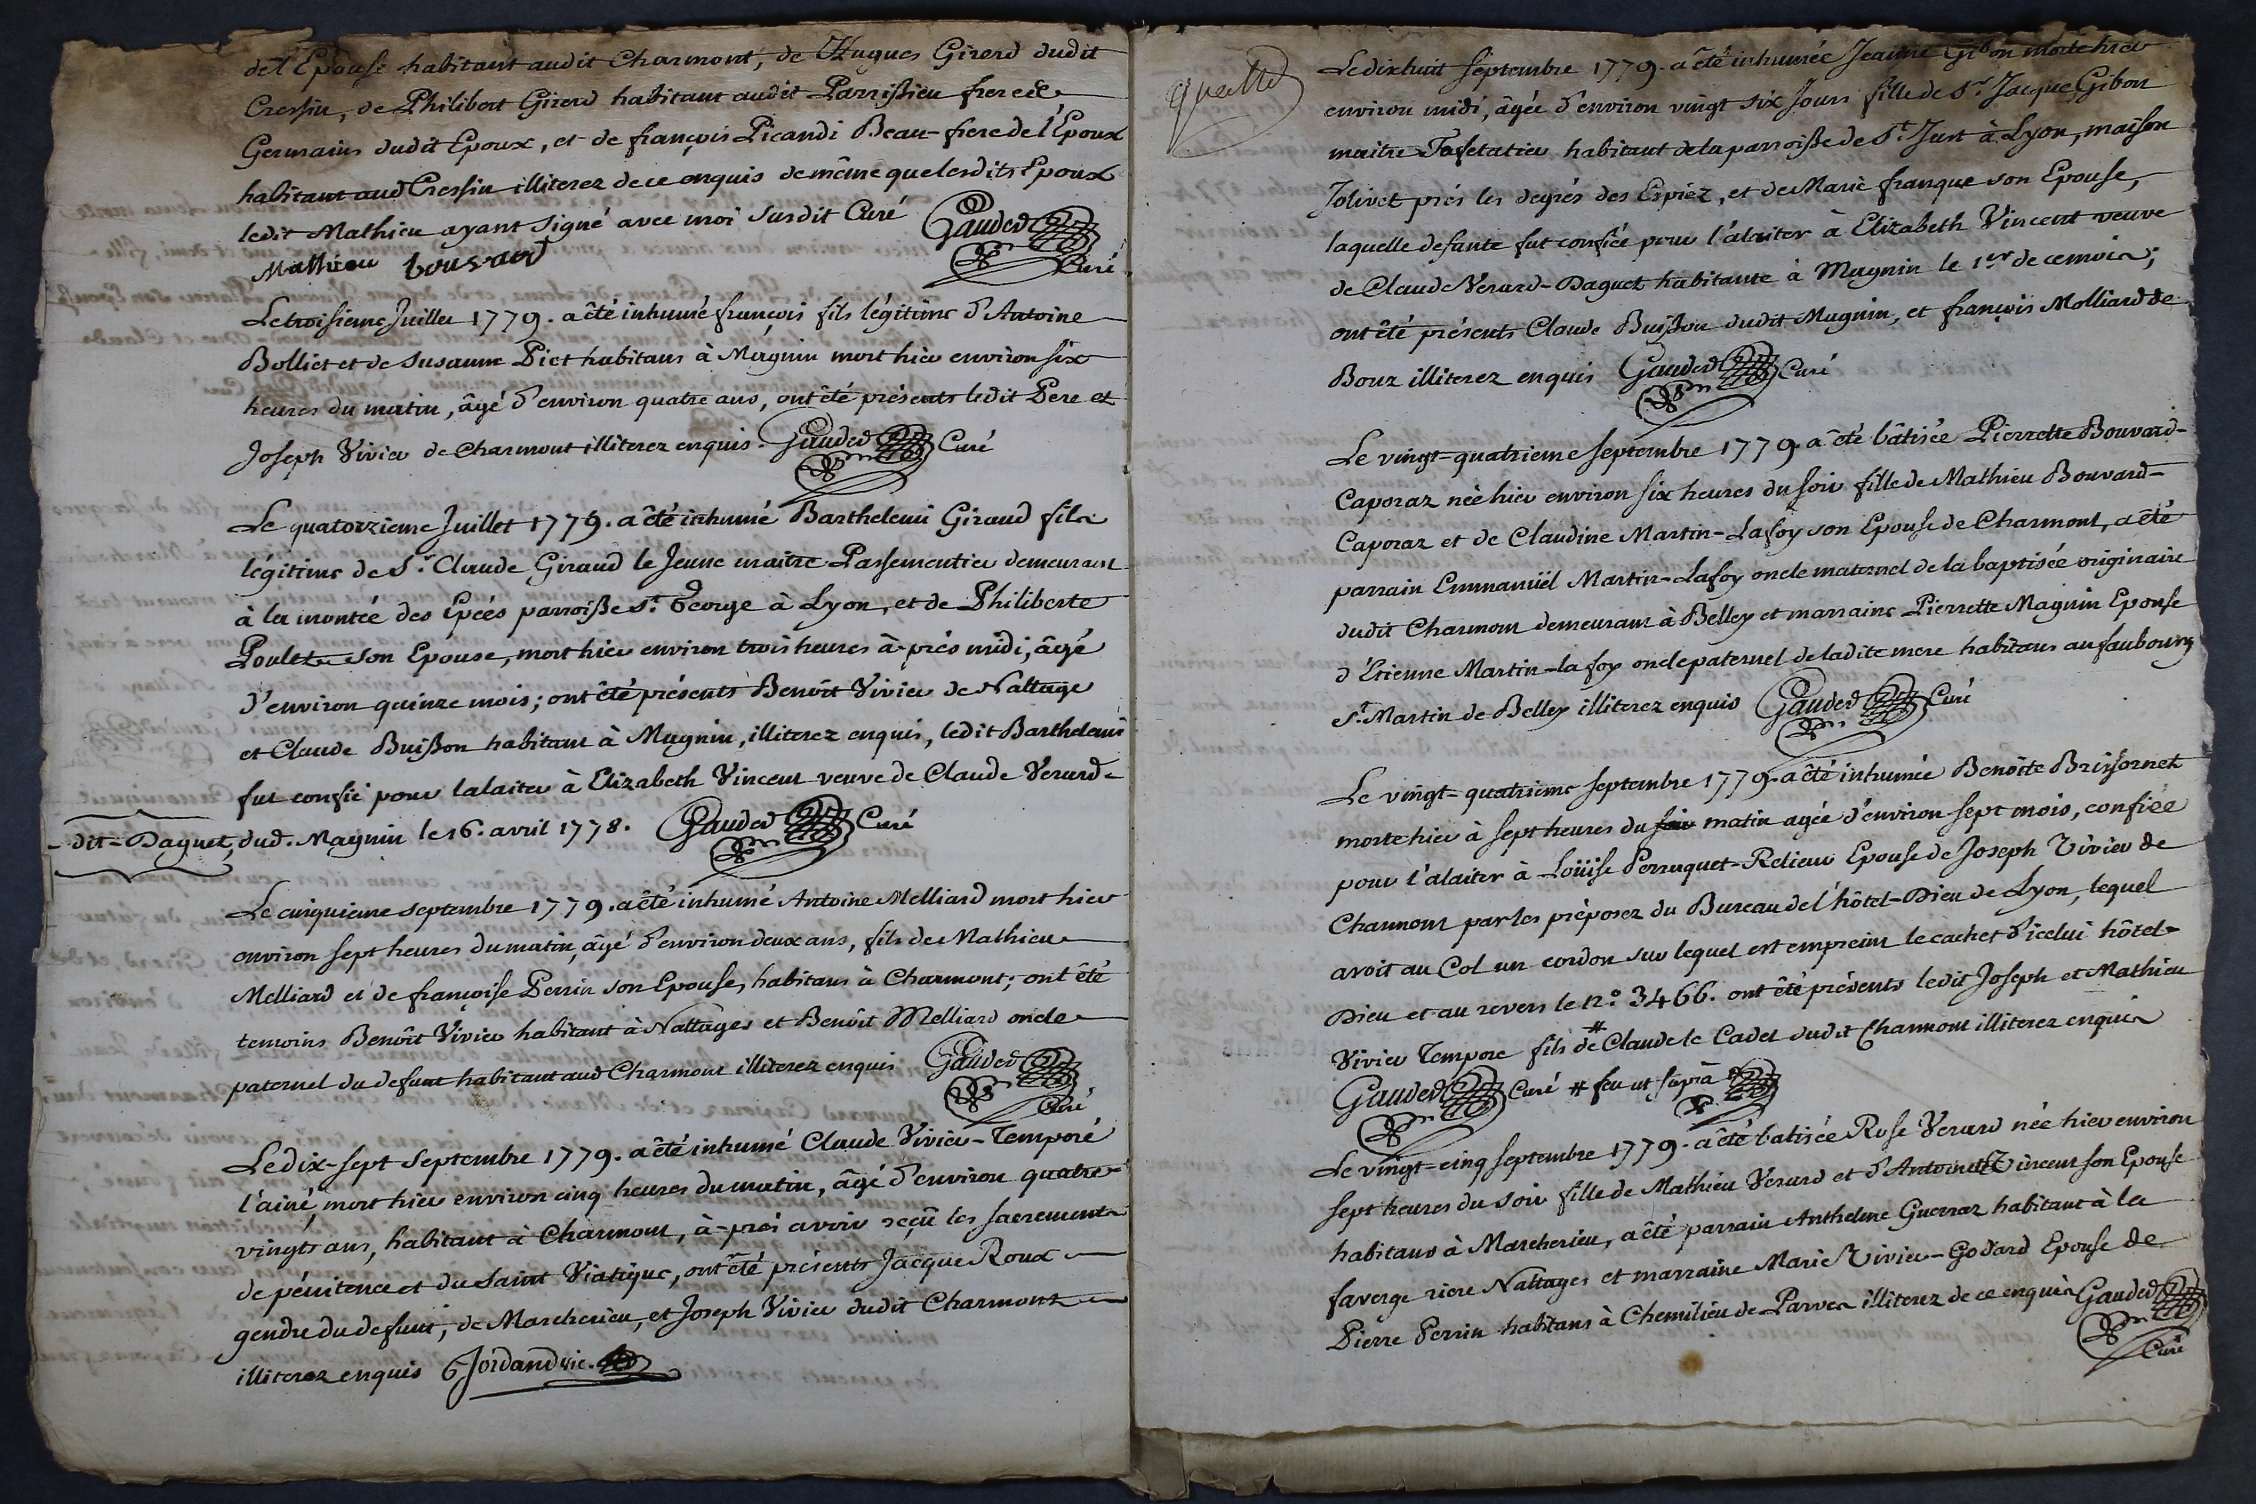 de l'Epouse habitant audit Charmont, de Hugues Girerd dudit
Cressin, de Philibert Girerd habitant audit Parrissieu freres
Germains dudit Epoux, et de françois Picandi Beau-frere de l'Époux
habitant aud Cressin illiterez de ce enquis de même que lesdits Epoux
ledit Mathieu ayant signé avec moi susdit Curé Gauded
Mathieu bouvard Curé
Le troisieme Juillet 1779. a été inhumé françois fils légitime d'Antoine
Bolliet et de Susanne Piet habitans à Magnin mort hier environ six
heures du matin, âgé d'environ quatre ans, ont été présents ledit Pere et
Joseph Vivier de Charmont illiterez enquis. Gauded Curé
Le quatorzieme Juillet 1779. a été inhumé Barthelemi Giraud fils
légitime de Sr. Claude Giraud le Jeune maitre Passementier demeurant
à la montée des Epées parroisse St. George à Lyon, et de Philiberte
Poulet son Epouse, mort hier environ trois heures à-près midi, âgé
d'environ quinze mois; ont été présents Benoît Vivier de Nattage
et Claude Buisson habitant à Magnin, illiterez enquis, ledit Barthelemi
fut confié pour lalaiter à Elizabeth Vincent veuve de Claude Verard-
-dit-Daguet, dud. Magnin le 16. avril 1778. Gauded Curé
Le cinquieme septembre 1779. a été inhumé Antoine Melliard mort hier
environ sept heures du matin, âgé d'environ deux ans, fils de Mathieu
Melliard et de françoise Perrin son Epouse, habitans à Charmont; ont été
temoins Benoît Vivier habitant à Nattages et Benoît Melliard oncle
paternel du defunt habitant aud Charmont illiterez enquis Gauded
Curé
Le dix-sept septembre 1779. a été inhumé Claude Vivier-Temporé
l'ainé, mort hier environ cinq heures du matin, âgé d'environ quatre
vingts ans, habitant à Charmont, à-près avoir reçû les sacrements
de pénitence et du saint Viatique, ont été présents Jacque Roux
gendre du defunt, de Marcherieu, et Joseph Vivier dudit Charmont
illiterez enquis Jordand vic.
Le dixhuit septembre 1779. a été inhumée Jeanne Gibon morte hier
environ midi, âgée d'environ vingt six Jours fille de Sr. Jacque Gibon
maitre Tafetatier habitant de la parroisse de St. Just à Lyon, maison
Jolivet prés les degrés des Espiez, et de Marie franque son Epouse,
laquelle defunte fut confiée pour l'alaiter à Elizabeth Vincent veuve
de Claude Verard-Daguet habitante à Magnin le 1er de ce mois;
ont été présents Claude Buisson dudit Magnin, et françois Molliard de
Bouz illiterez enquis Gauded Curé
Le vingt-quatrieme septembre 1779. a été bâtisée Pierrette Bouvard-
Caporaz née hier environ six heures du soir fille de Mathieu Bouvard-
Caporaz et de Claudine Martin-Lafoy son Epouse de Charmont, a été
parrain Emmanuël Martin-Lafoy oncle maternel de la baptisée originaire
dudit Charmont demeurant à Belley et marraine Pierrette Magnin Epouse
d'Etienne Martin-lafoy oncle paternel de ladite mere habitans au faubourg
St. Martin de Belley illiterez enquis Gauded Curé
Le vingt-quatrieme septembre 1779. a été inhumée Benoîte Brissornet
morte hier à sept heures du soir matin agée d'environ sept mois, confiée
pour l'alaiter à Loüise Perruquet-Relieur Epouse de Joseph Vivier de
Charmont par les préposez du Bureau de l'hôtel-Dieu de Lyon, lequel
avoit au Col un cordon sur lequel est empreint le cachet d'icelui hôtel-
Dieu et au revers le n.° 3466. ont été présents ledit Joseph et Mathieu
Vivier Tempore fils de # Claude le Cadet dudit Charmont illiterez enquis
Gauded Curé # feu ut suprà
Le vingt-cinq septembre 1779. a été batisée Rose Verard née hier environ
sept heures du soir fille de Mathieu Verard et d'Antoinette Vincent son Epouse
habitans à Marcherieu, a été parrain Anthelme Guerraz habitant à la
faverge riere Nattages et marraine Marie Vivier-Godard Epouse de
Pierre Perrin habitans à Chemilieu de Parves illiterez de ce enquis Gauded
Curé